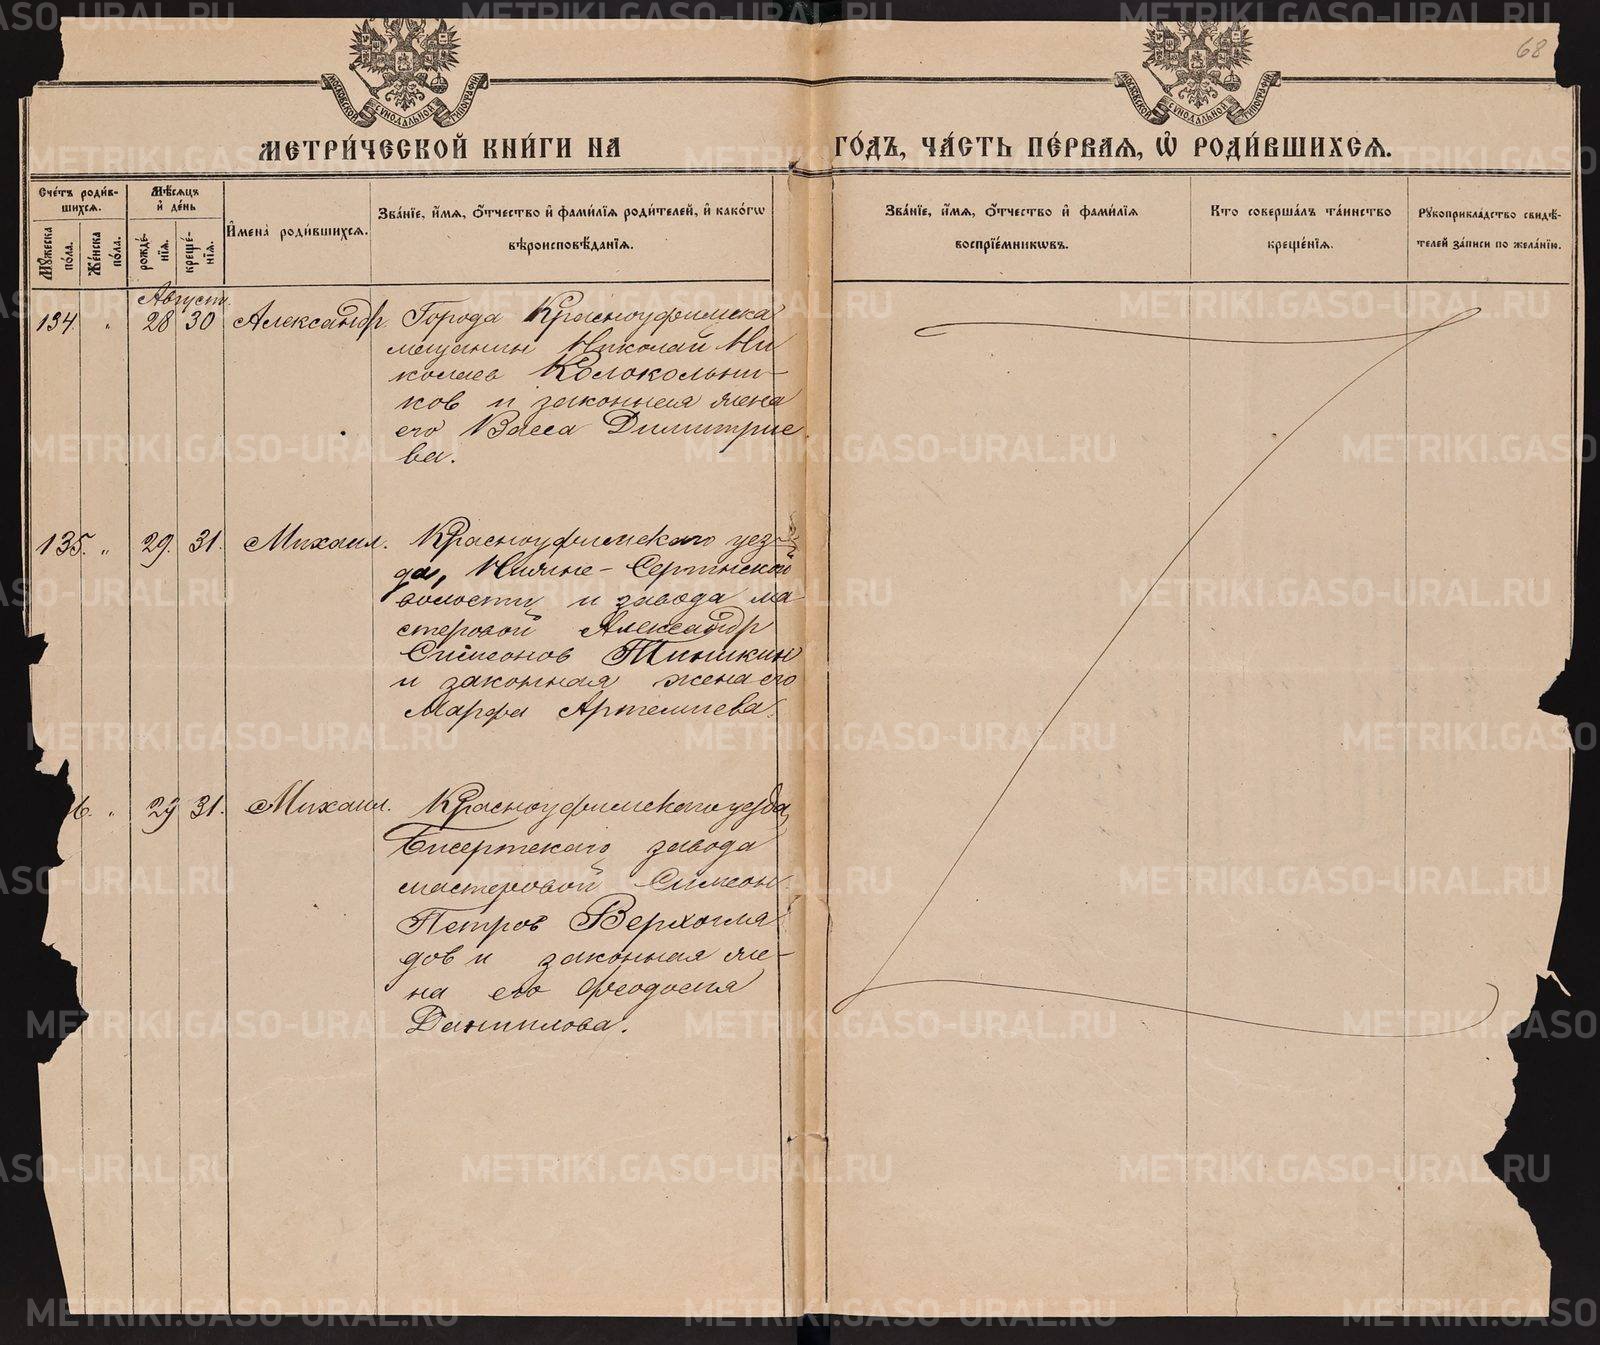 68
МОСКОВСКОЙ СУНОДАЛЬНОЙ ТИПОГРАФИИ
МОСКОВСКОЙ СУНОДАЛЬНОЙ ТИПОГРАФИИ
МЕТРИ́ЧЕСКОЙ КНИ́ГИ НА
ГО́ДЪ, ЧА́СТЬ ПЕ́РВАѦ, Ѡ҆ РОДИ́ВШИХСѦ.
Сче́тъ роди́в-
шихсѧ.
Мꙋ́жеска
по́ла.
Же́нска
по́ла.
Мѣ́сѧцъ
и҆ де́нь
рожде́-
нїѧ.
креще́-
нїѧ.
И҆мена̀ роди́вшихсѧ.
Зва́нїе, и҆́мѧ, ѻ҆́тчество и҆ фами́лїѧ роди́телей, и҆ како́гѡ
вѣроисповѣ́данїѧ.
Зва́нїе, и҆́мѧ, ѻ҆́тчество и҆ фами́лїѧ
воспрїе́мникѡвъ.
Кто̀ соверша́лъ та́инство
креще́нїѧ.
Рꙋкоприкла́дство свидѣ́-
телей за́писи по жела́нїю.
Август.
134 " 28 30 Александр. Города Красноуфимска
мещанин Николай Ни
колаев Колокольни-
ков и законная жена
его Васса Димитрие
ва.
135. " 29. 31. Михаил. Красноуфимского уез-
да, Нижне-Сергинской
волости и завода ма
стеровой Александр
Симеонов Тиникин
и законная жена его
Марфа Артемиева.
6. " 29 31. Михаил. Красноуфимского уезда
Бисертского завода
мастеровой Симеон
Петров Верхогля
дов и законная же-
на его Феодосия
Данилова.
METRIKI.GASO-URAL.RU